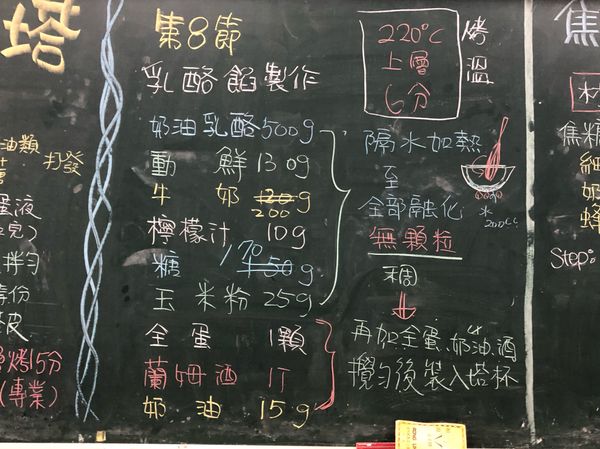 塔
油類 打發
蛋液
拌勻
份
皮
烤15分
(專業)
第8節
乳酪餡製作
奶油乳酪500g
動 鮮 130g
牛 奶 200g
檸檬汁 10g
糖 170 150g
玉米粉 25g
全蛋 1顆
蘭姆酒 1T
奶油 15g
220°C
上層
6分
烤溫
隔水加熱
至
全部融化
無顆粒
稠
水
200cc
再加全蛋、奶油、酒
攪勻後裝入塔杯
焦
材
焦糖
細
奶
蜂
Step: